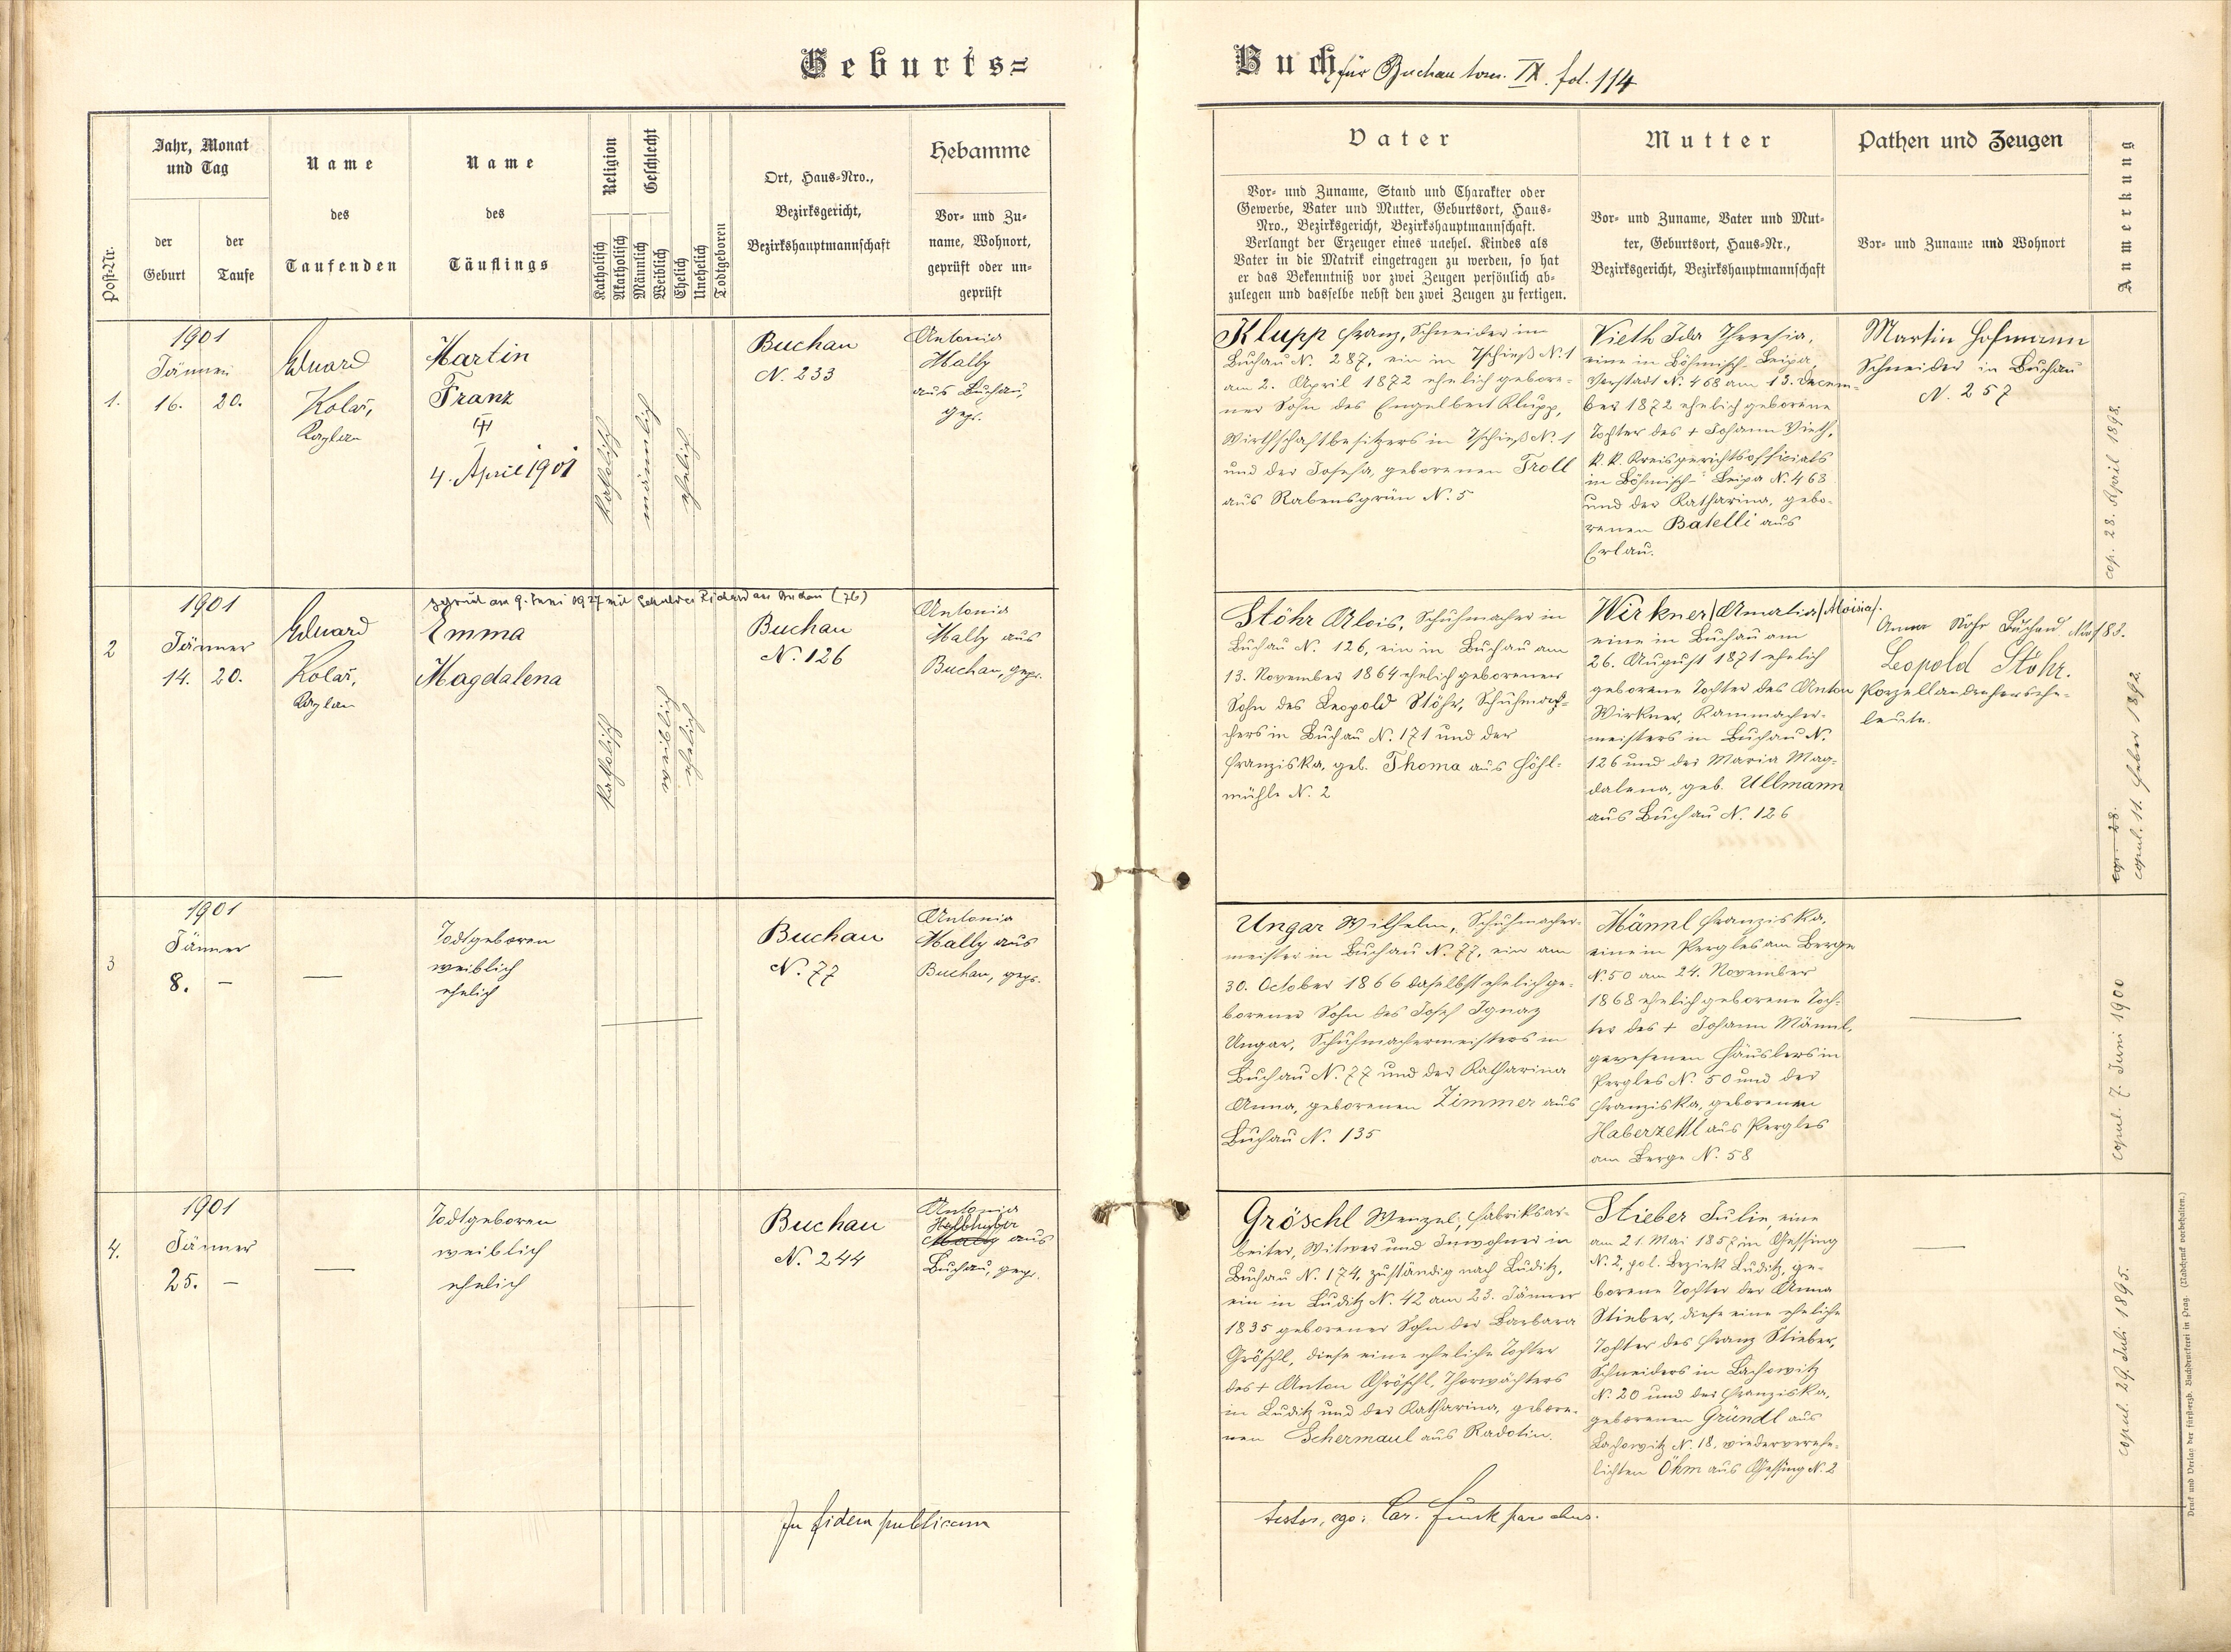 Geburts=
Post-Nr.
Jahr, Monat
und Tag
der
Geburt
der
Taufe
Name
des
Taufenden
Name
des
Täuflings
Religion
Katholisch
Akatholisch
Geschlecht
Männlich
Weiblich
Ehelich
Unehelich
Todtgeboren
Ort, Haus-Nro.,
Bezirksgericht,
Bezirkshauptmannschaft
Hebamme
Vor- und Zu-
name, Wohnort,
geprüft oder un-
geprüft
1.
1901
Jänner
16. 20.
Eduard
Kolař,
Kaplan
Martin
Franz
4. April 1901
katholisch
männlich
ehelich
Buchau
N. 233
Antonia
Mally
aus Buchau,
gepr.
2
1901
Jänner
14. 20.
Eduard
Kolař,
Kaplan
am 9. Juni 1927 mit aus Buchau (76)
Emma
Magdalena
katholisch
weiblich
ehelich
Buchau
N. 126
Antonia
Mally aus
Buchau, gepr.
3
1901
Jänner
8. –
—
Todtgeboren
weiblich
ehelich
Buchau
N. 77
Antonia
Mally aus
Buchau, gepr.
4.
1901
Jänner
25. –
—
Todtgeboren
weiblich
ehelich
Buchau
N. 244
Antonia
Halbhuber
Mally aus
Buchau, gepr.
In fidem publicam
Buch für Buchau tom. IX. fol. 114
Vater
Vor- und Zuname, Stand und Charakter oder
Gewerbe, Vater und Mutter, Geburtsort, Haus-
Nro., Bezirksgericht, Bezirkshauptmannschaft.
Verlangt der Erzeuger eines unehel. Kindes als
Vater in die Matrik eingetragen zu werden, so hat
er das Bekenntniß vor zwei Zeugen persönlich ab-
zulegen und dasselbe nebst den zwei Zeugen zu fertigen.
Mutter
Vor- und Zuname, Vater und Mut-
ter, Geburtsort, Haus-Nr.,
Bezirksgericht, Bezirkshauptmannschaft
Pathen und Zeugen
Vor- und Zuname und Wohnort
Anmerkung
Klupp Franz, Schneider in
Buchau N. 287, ein in Tschieß N. 1
am 2. April 1872 ehelich gebore-
ner Sohn des Engelbert Klupp,
Wirthschaftbesitzers in Tschieß N. 1
und der Josefa, geborenen Troll
aus Rabensgrün N. 5
Vieth Ida Theresia,
eine in Böhmisch-Leipa,
Vorstadt N. 468 am 13. Decem-
ber 1872 ehelich geborene
Tochter des + Johann Vieth,
k. k. Kreisgerichtsofficials
in Böhmisch-Leipa N. 463
und der Katharina, gebo-
renen Batelli aus
Erlau.
Martin Hofmann
Schneider in Buchau
N. 257
cop. 28. April 1898.
Stöhr Alois, Schuhmacher in
Buchau N. 126, ein in Buchau am
13. November 1864 ehelich geborener
Sohn des Leopold Stöhr, Schuhma-
chers in Buchau N. 171 und der
Franziska, geb. Thoma aus Höhl-
mühle N. 2
Wirkner /Amalia/ Aloisia/.
eine in Buchau am
26. August 1871 ehelich
geborene Tochter des Anton
Wirkner, Kammacher-
meisters in Buchau N.
126 und der Maria Mag-
dalena, geb. Ullmann
aus Buchau N. 126
Anna Stöhr Buchau No 183.
Leopold Stöhr.
Porzellandrehersehe-
leute.
cop. 28.
copul. 11. Feber 1892.
Ungar Wilhelm, Schuhmacher-
meister in Buchau N. 77, ein am
30. October 1866 daselbst ehelich ge-
borener Sohn des Josef Ignaz
Ungar, Schuhmachermeisters in
Buchau N. 77 und der Katharina
Anna, geborenen Zimmer aus
Buchau N. 135
Männl Franziska,
eine in Pergles am Berge
N. 50 am 24. November
1868 ehelich geborene Toch-
ter des + Johann Männl,
gewesenen Häuslers in
Pergles N. 50 und der
Franziska, geborenen
Haberzettl aus Pergles
am Berge N. 58
copul. 7. Juni 1900
Gröschl Wenzel, Fabriksar-
beiter, Witwer und Inwohner in
Buchau N. 174, zuständig nach Luditz,
ein in Luditz N. 42 am 23. Jänner
1835 geborener Sohn der Barbara
Gröschl, diese eine eheliche Tochter
des + Anton Gröschl, Thorwächters
in Luditz und der Katharina, gebore-
nen Schermaul aus Radotin.
Stieber Julie, eine
am 21. Mai 1857 in Gessing
N. 2, pol. Bezirk Luditz, ge-
borene Tochter der Anna
Stieber, diese eine eheliche
Tochter des Franz Stieber,
Schneiders in Lachowitz
N. 20 und der Franziska,
geborenen Gründl aus
Lachowitz N. 18, wiederverehe-
lichten Öhm aus Gessing N. 2
copul. 29. Juli 1895.
testor, ego: Car. Funk parochus.
Druck und Verlag der fürsterzb. Buchdruckerei in Prag. (Nachdruck vorbehalten.)